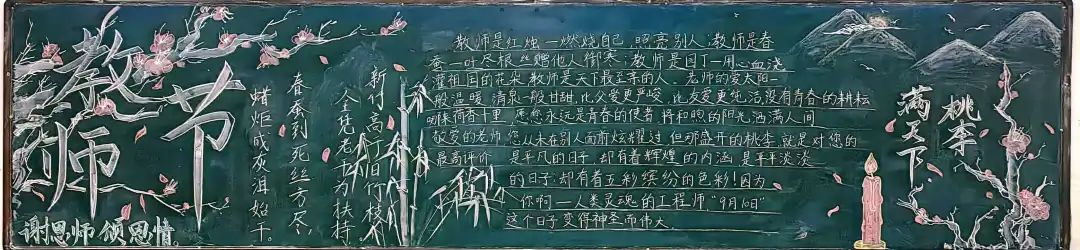 教师节
谢恩师 颂恩情
新竹高于旧竹枝
全凭老干为扶持
春蚕到死丝方尽
蜡炬成灰泪始干。
教师是红烛一燃烧自己,照亮别人;教师是春
蚕一吐尽银丝赠他人御寒;教师是园丁一用心血浇
灌祖国的花朵.教师是天下最至尊的人、老师的爱太阳一
般温暖 清泉一般甘甜,比父爱更严峻 比友爱更纯洁,没有青春的耕耘
香千里 愿您永远是青春的使者 将和煦的阳光洒满人间
敬爱的老师,您从未在别人面前炫耀过 但那盛开的桃李,就是对您的
最高评价 是平凡的日子 却有着辉煌的内涵 是平平淡淡
的日子;却有着五彩缤纷的色彩!因为
你啊一人类灵魂的工程师“9月10日”
这个日子变得神圣而伟大
桃李
满天下